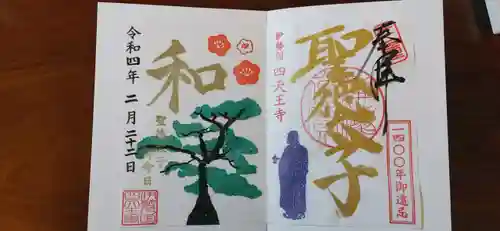 奉拝
聖徳太子
伊勢国 四天王寺
一四〇〇年御遠忌
和
令和四年 二月 二十二日